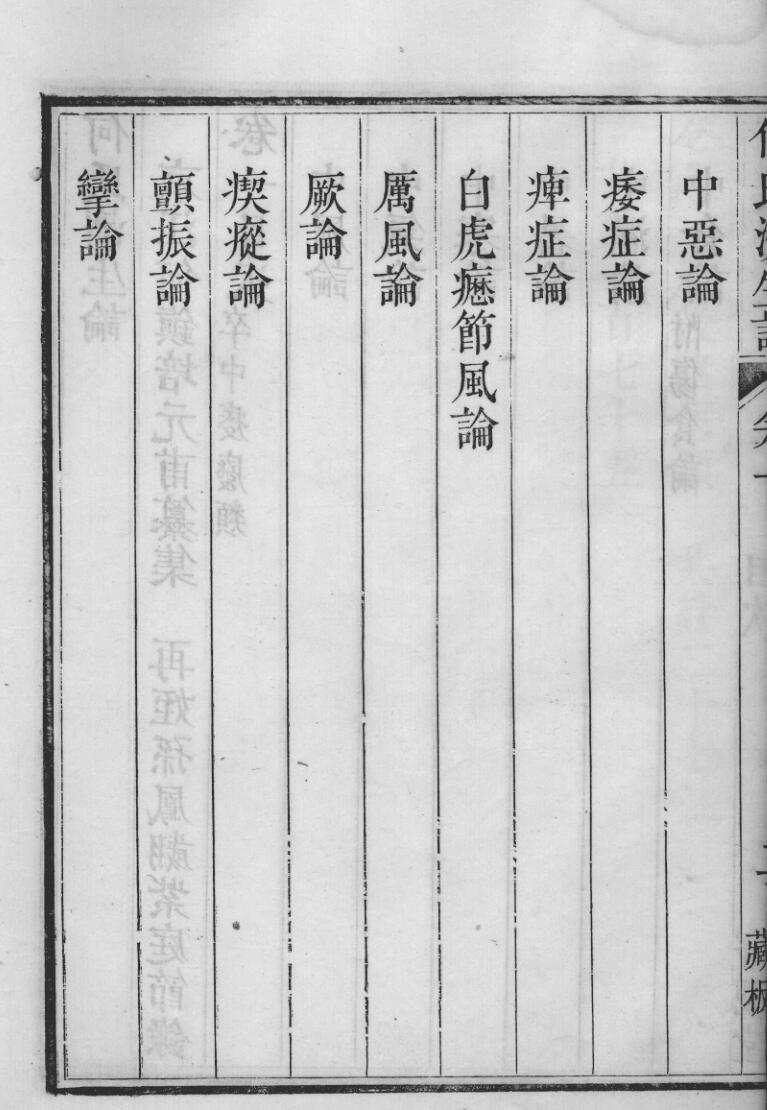 中惡論
痿症論
痺症論
白虎癧節風論
厲風論
厥論
瘈瘲論
顫振論
攣論
藏板